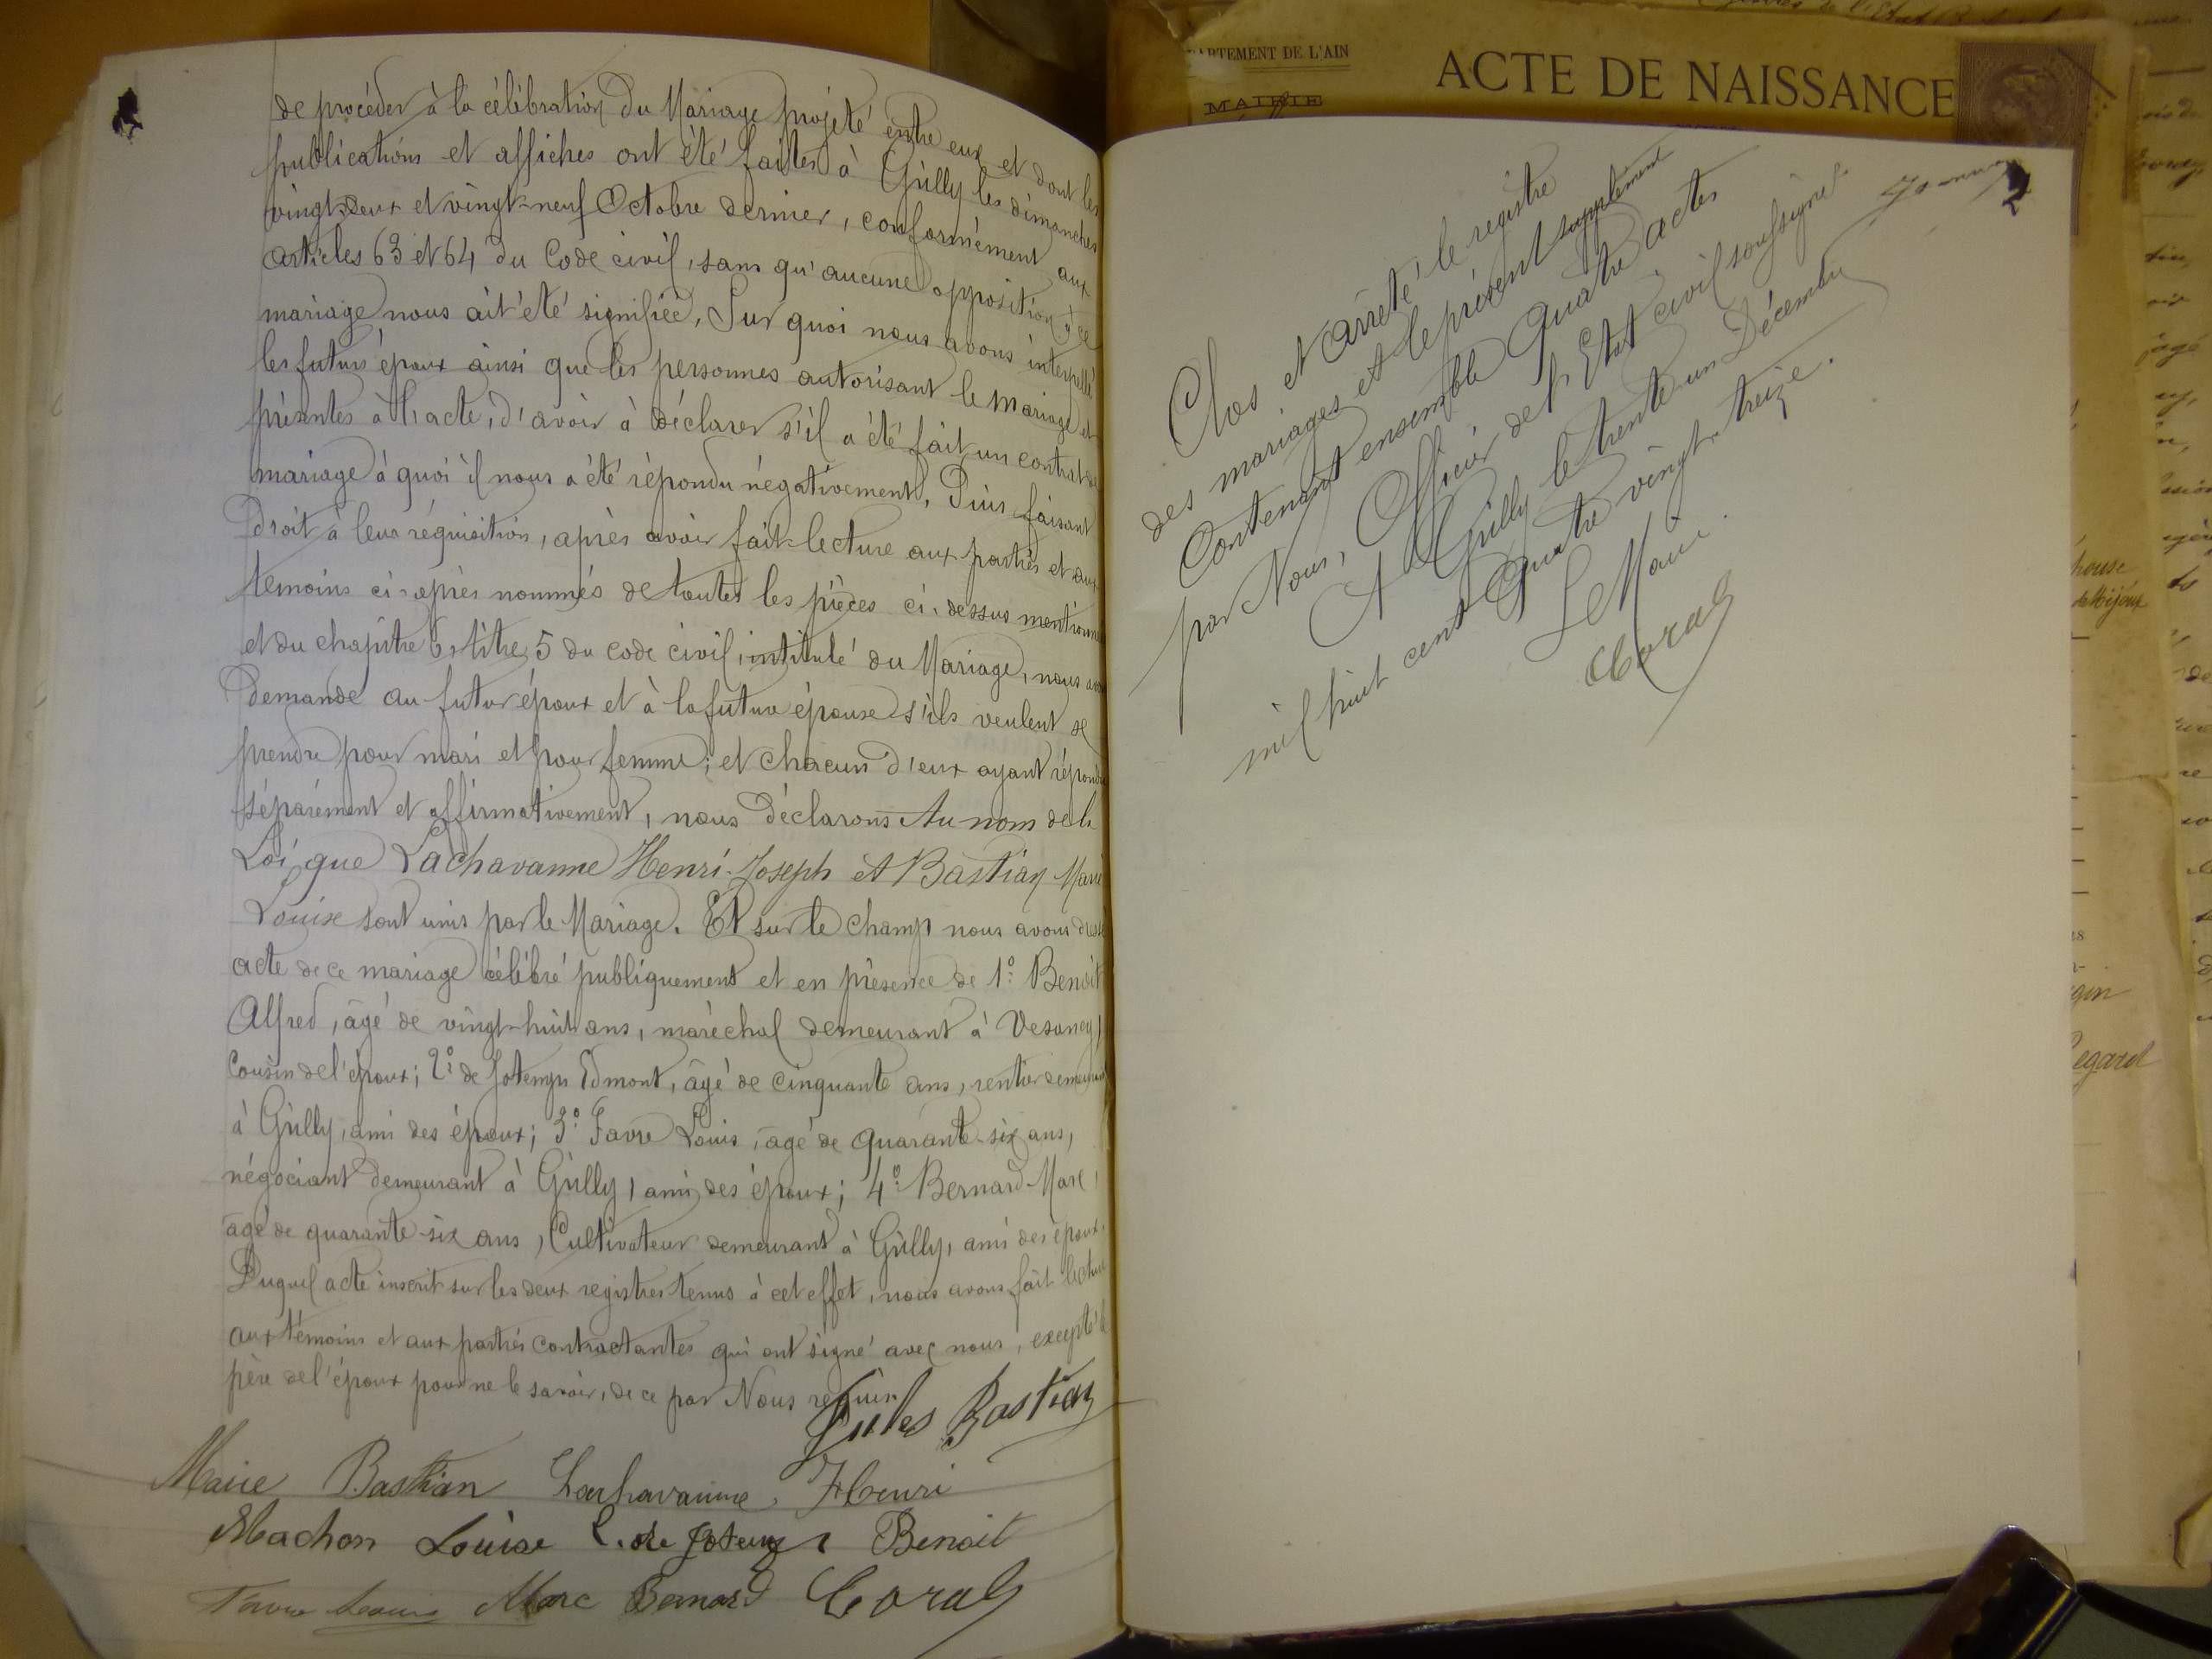 de procéder à la célébration du Mariage projeté entre eux et dont les
publications et affiches ont été faites à Grilly les dimanches
vingt-deux et vingt-neuf Octobre dernier, conformément aux
articles 63 et 64 du Code civil, sans qu'aucune opposition à ce
mariage nous ait été signifiée, Sur quoi nous avons interpellé
les futurs époux ainsi que les personnes autorisant le mariage et
présentes à l'acte, d'avoir à déclarer s'il a été fait un contrat de
mariage à quoi il nous a été répondu négativement. Puis faisant
Droit à leur réquisition, après avoir fait lecture aux parties et aux
témoins ci-après nommés de toutes les pièces ci-dessus mentionnées
et du chapitre 6, titre 5 du code civil, intitulé du Mariage, nous avons
Demandé au futur époux et à la future épouse s'ils veulent se
prendre pour mari et pour femme; et chacun d'eux ayant répondu
séparément et affirmativement, nous déclarons Au nom de la
Loi, que Lachavanne Henri-Joseph et Bastian Marie
Louise sont unis par le Mariage. Et sur le champ nous avons dressé
acte de ce mariage célébré publiquement et en présence de 1° Benoit
Alfred, âgé de vingt-huit ans, maréchal demeurant à Vesancy,
Cousin de l'époux; 2° de Jotemps Edmont, âgé de cinquante ans, rentier demeurant
à Grilly, ami des époux; 3° Favre Louis, âgé de quarante-six ans,
négociant demeurant à Grilly, ami des époux; 4° Bernard Marc,
âgé de quarante-six ans, Cultivateur demeurant à Grilly, ami des époux.
Duquel acte inscrit sur les deux registres tenus à cet effet, nous avons fait lecture
aux témoins et aux parties contractantes qui ont signé avec nous, excepté le
père de l'époux pour ne le savoir, de ce par Nous requis.
Jules Bastian
Marie Bastian Lachavanne Henri
Machon Louise de Jotemps Benoit
Favre Louis Marc Bernard
DEPARTEMENT DE L'AIN
MAIRIE
ACTE DE NAISSANCE
Clos et arrêté le registre
des mariages et le présent supplément
Contenant ensemble quatre actes
par Nous, Officier de l'Etat civil soussigné
A Grilly le trente-un Décembre
mil huit cent quatre vingt-treize.
Le Maire